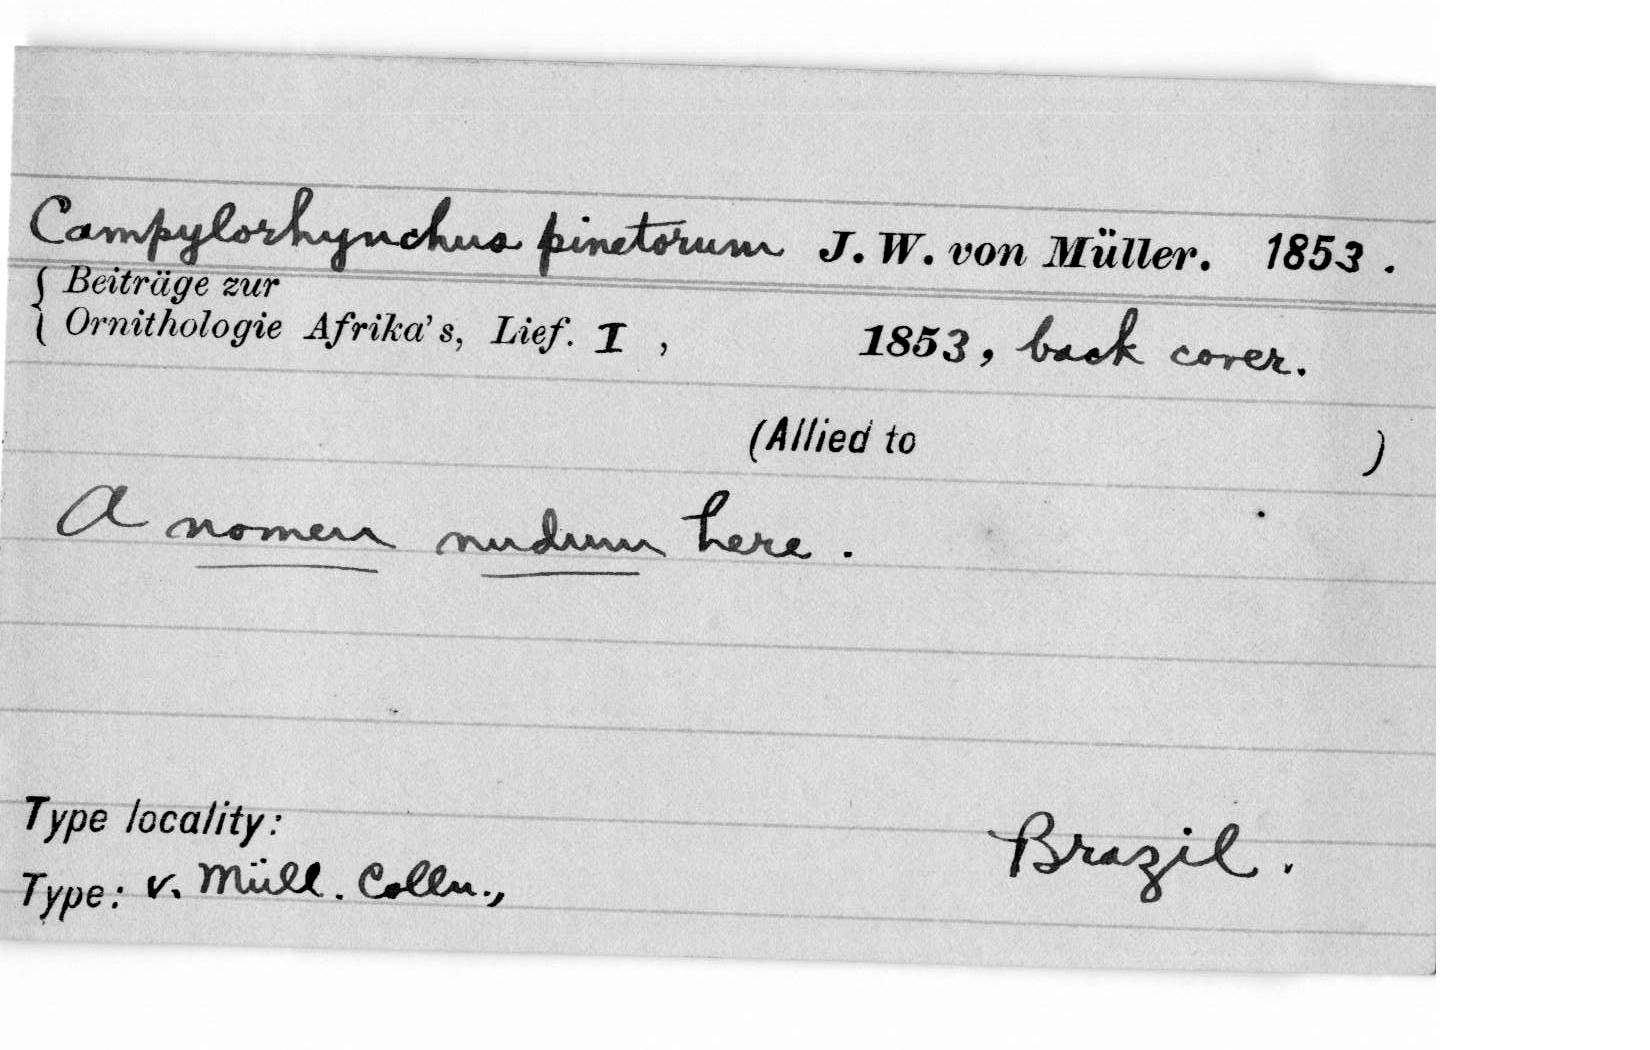 Campylorhynchus pinetorum J. W. von Müller. 1853.
Beiträge zur
Ornithologie Afrika's, Lief. I, 1853, back cover.
(Allied to )
A nomen nudum here.
Type locality: Brazil.
Type: v. Müll. Colln.,